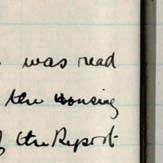 was read
the housing
the Report